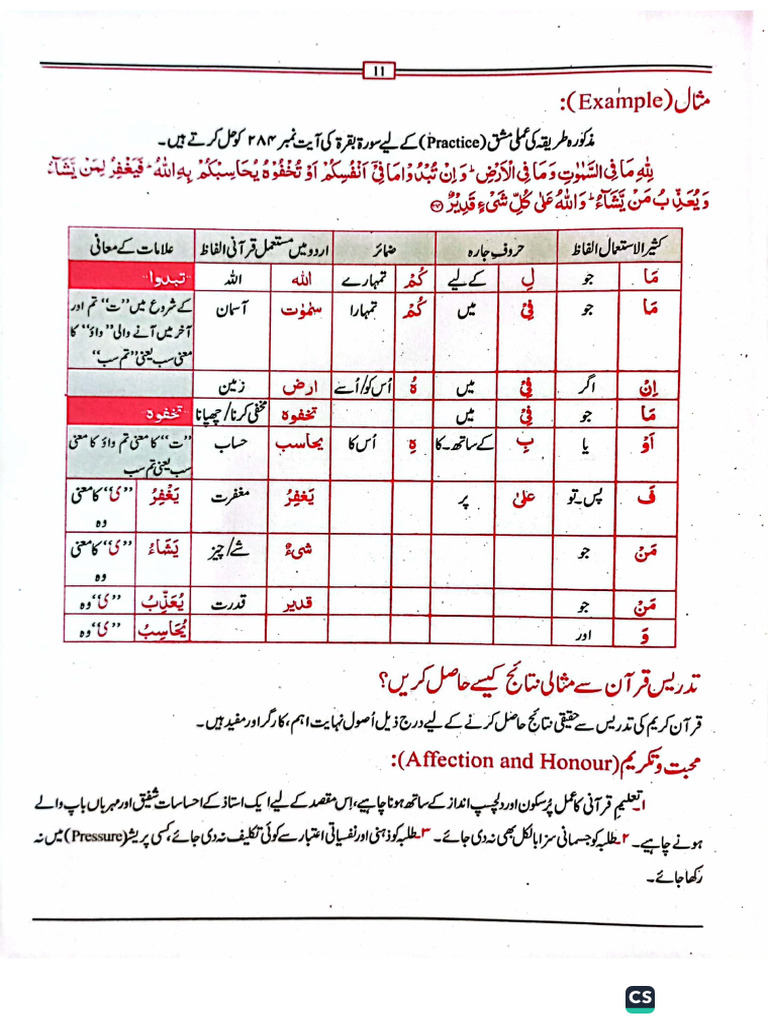 ۱۱
مثال (Example):
مذکورہ طریقہ کی عملی مشق (Practice) کے لیے سورۃ بقرۃ کی آیت نمبر ۲۸۴ کو حل کرتے ہیں۔
لِلّٰهِ مَا فِی السَّمٰوٰتِ وَمَا فِی الْاَرْضِ ؕ وَاِنْ تُبْدُوْا مَا فِیْۤ اَنْفُسِكُمْ اَوْ تُخْفُوْهُ یُحَاسِبْكُمْ بِهِ اللّٰهُ ؕ فَیَغْفِرُ لِمَنْ یَّشَآءُ
وَیُعَذِّبُ مَنْ یَّشَآءُ ؕ وَاللّٰهُ عَلٰی كُلِّ شَیْءٍ قَدِیْرٌ
کثیر الاستعمال الفاظ حروف جارہ ضمائر اردو میں مستعمل قرآنی الفاظ علامات کے معانی
مَا جو لِ کے لیے كُمْ تمہارے الله اللہ "تبدوا"
مَا جو فِیْ میں كُمْ تمہارا سمٰوٰت آسمان کے شروع میں "ت" تم اور
آخر میں آنے والی "واؤ" کا
معنی سب یعنی "تم سب"
اِنْ اگر فِیْ میں هُ اُس کو/اُسے ارض زمین
مَا جو فِیْ میں تخفوہ مخفی کرنا/چھپانا "تخفوہ"
اَوْ یا بِ کے ساتھ۔کا هِ اُس کا یحاسب حساب "ت" کا معنی تم واؤ کا معنی
سب یعنی تم سب
فَ پس۔تو عَلٰی پر یَغْفِرُ مغفرت یَغْفِرُ "ی" کا معنی
وہ
مَنْ جو شیءٌ شے/چیز یَشَاءُ "ی" کا معنی
وہ
مَنْ جو قدیر قدرت یُعَذِّبُ "ی" وہ
وَ اور یُحَاسِبُ "ی" وہ
تدریس قرآن سے مثالی نتائج کیسے حاصل کریں؟
قرآن کریم کی تدریس سے حقیقی نتائج حاصل کرنے کے لیے درج ذیل اُصول نہایت اہم، کارگر اور مفید ہیں۔
محبت و تکریم (Affection and Honour):
۱۔ تعلیم قرآنی کا عمل پُر سکون اور دلچسپ انداز کے ساتھ ہونا چاہیے، اِس مقصد کے لیے ایک استاذ کے احساسات شفیق اور مہربان باپ والے
ہونے چاہیے۔ ۲۔ طلبہ کو جسمانی سزا بالکل بھی نہ دی جائے۔ ۳۔ طلبہ کو ذہنی اور نفسیاتی اعتبار سے کوئی تکلیف نہ دی جائے، کسی پریشر (Pressure) میں نہ
رکھا جائے۔
CS